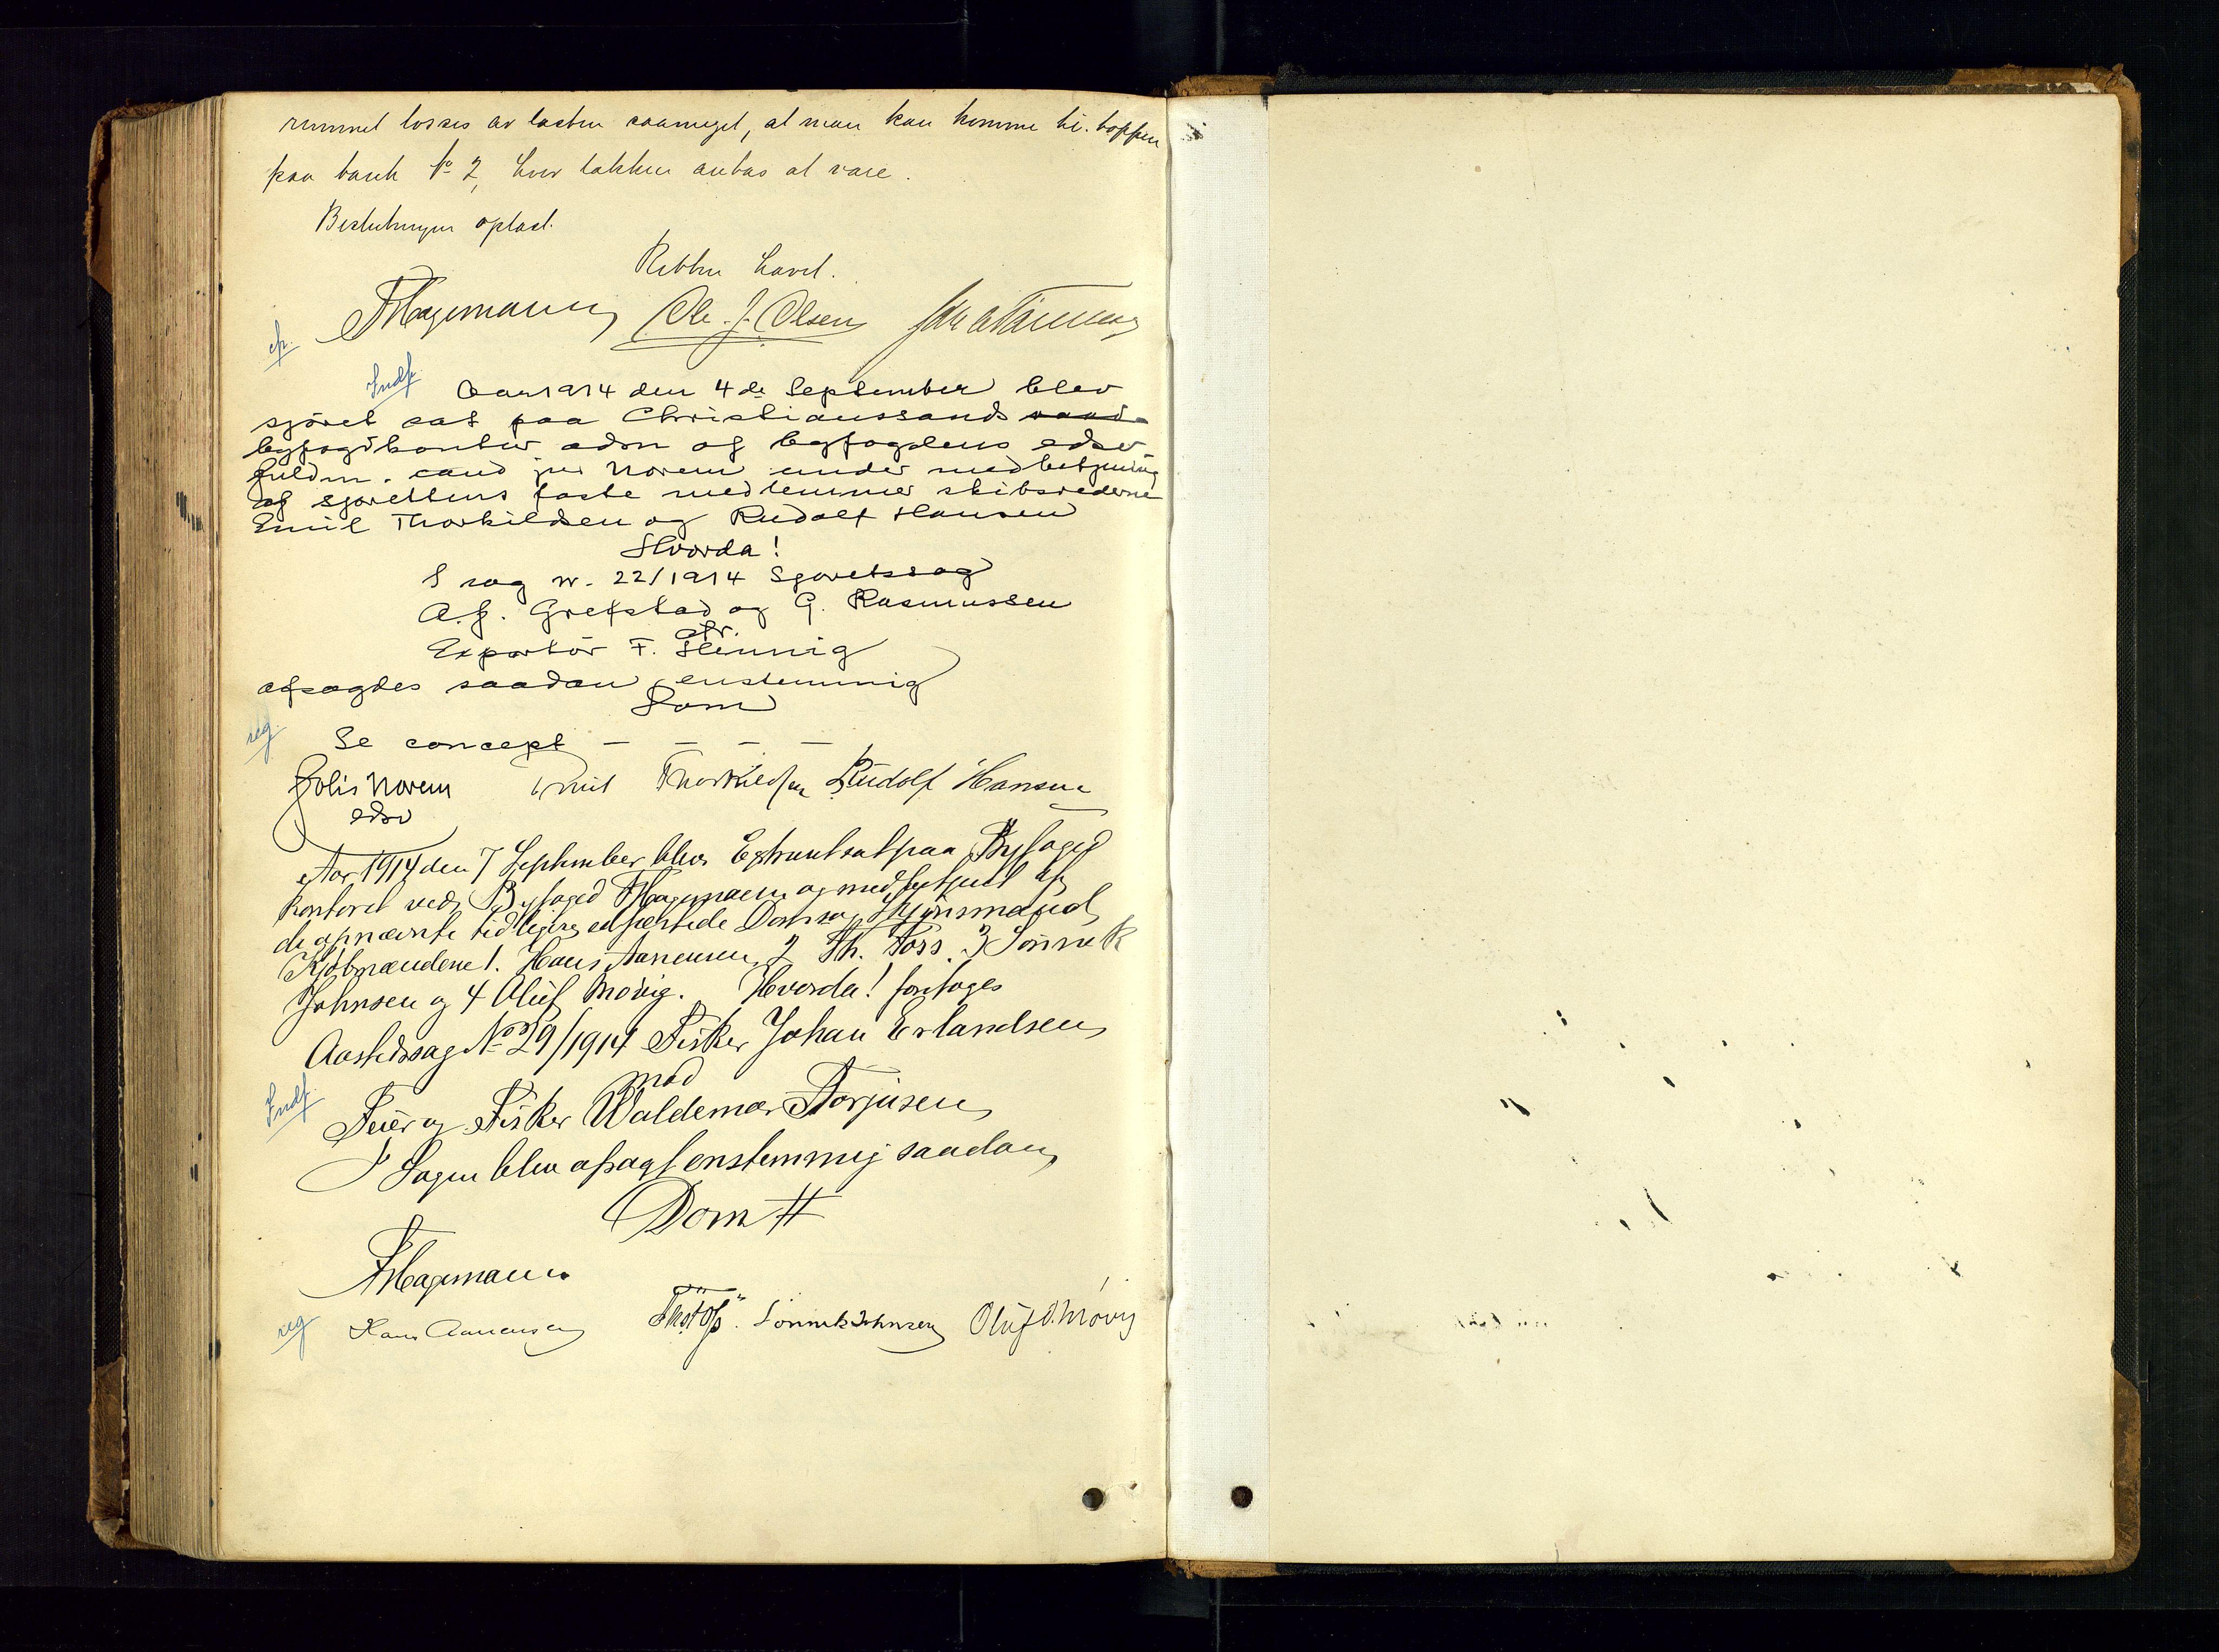 rummet losses av lasten saameget, at man kan komme til toppen
paa tank No 2, hvor lækken antas at være.
Beslutningen oplæst.
Retten hævet.
FHagemann Ole J. Olsen
ep.
Indf. Aar 1914 den 4de September blev
sjöret sat paa Christianssands
byfogdkontor adm af byfogdens edsv
fuldm. cand jur Norem under medbetjening
af sjørettens faste medlemmer skibsrederne
Emil Thorkildsen og Rudolf Hansen
Hvorda!
I sag nr. 22/1914 Sjøretssag
A. J. Grefstad og G. Rasmussen
ctr.
Exportör F. Hennig
afsagdes saadan enstemmig
Dom
reg Se concept – – – –
Jolis Norem Emil Thorkildsen Rudolf Hansen
edsv
Aar 1914 den 7 September blev Extraret sat paa Byfoged
kontoret ved Byfoged FHagemann og medbetjent af
de opnævnte tidligere edfæstede Doms og Skjönsmænd
Kjöbmændene 1. Hans Aanensen 2 Th. Foss. 3 Sönnik
Johnsen og 4 Oluf Mövig. Hvorda! foretoges
Aastedssag No 29/1914 Fisker Johan Erlandsen
mod
Indf. Feier og Fisker Waldemar Torjusen
I Sagen blev afsagt enstemmig saadan
Dom #
FHagemann
reg Hans Aanensen Th. Foss. Sönnik Johnsen Oluf O. Mövig